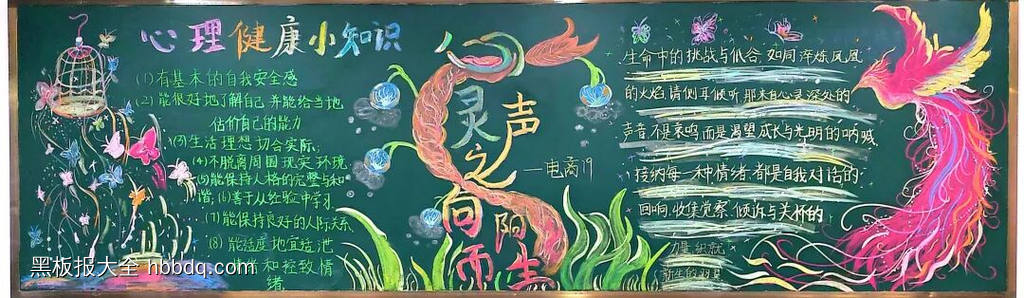 心理健康小知识
(1)有基本的自我安全感
(2)能很好地了解自己并能给当地
估价自己的能力
(3)生活理想切合实际;
(4)不脱离周围现实环境
(5)能保持人格的完整与和
谐;(6)善于从经验中学习
(7)能保持良好的人际关系
(8)能适度地宣泄
情绪和控致情
绪
灵
声
之
——电商19
向
阳
而
生
生命中的挑战与低谷,如同淬炼凤凰
的火焰.请侧耳倾听,那来自心灵深处的
声音.不是哀鸣.而是渴望成长与光明的呐喊.
接纳每一种情绪.都是自我对话的
回响.收集觉察、倾诉与关怀的
力量.织就
新生的羽翼
黑板报大全 hbbdq.com